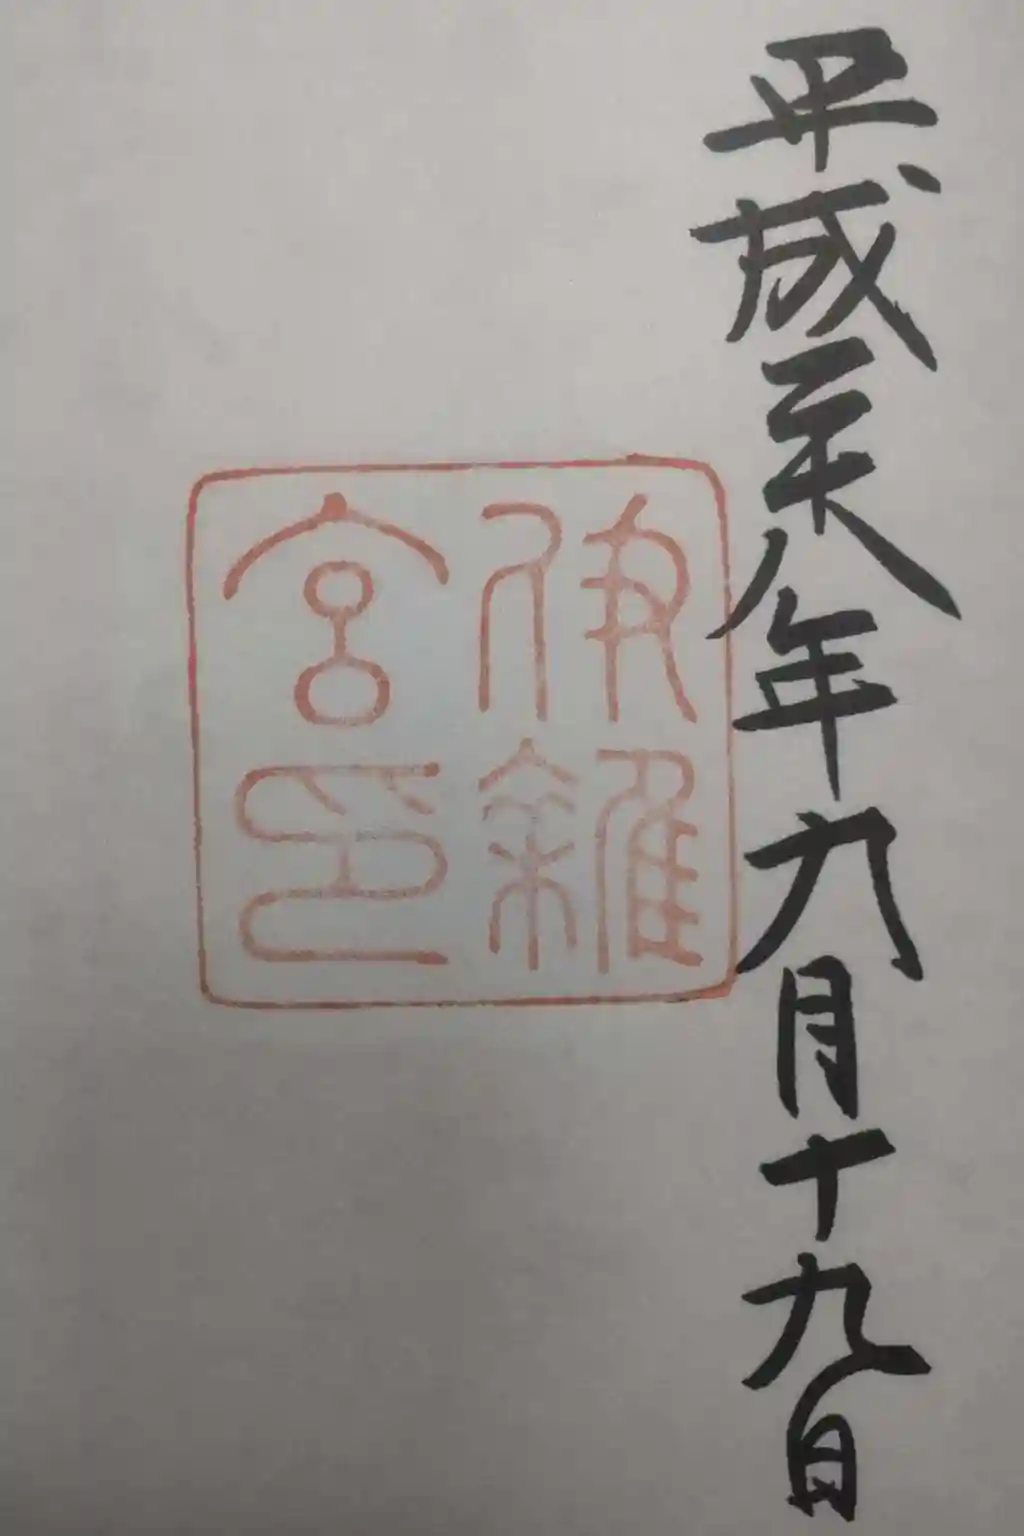 平成二十八年六月十九日
伊雜
宮印